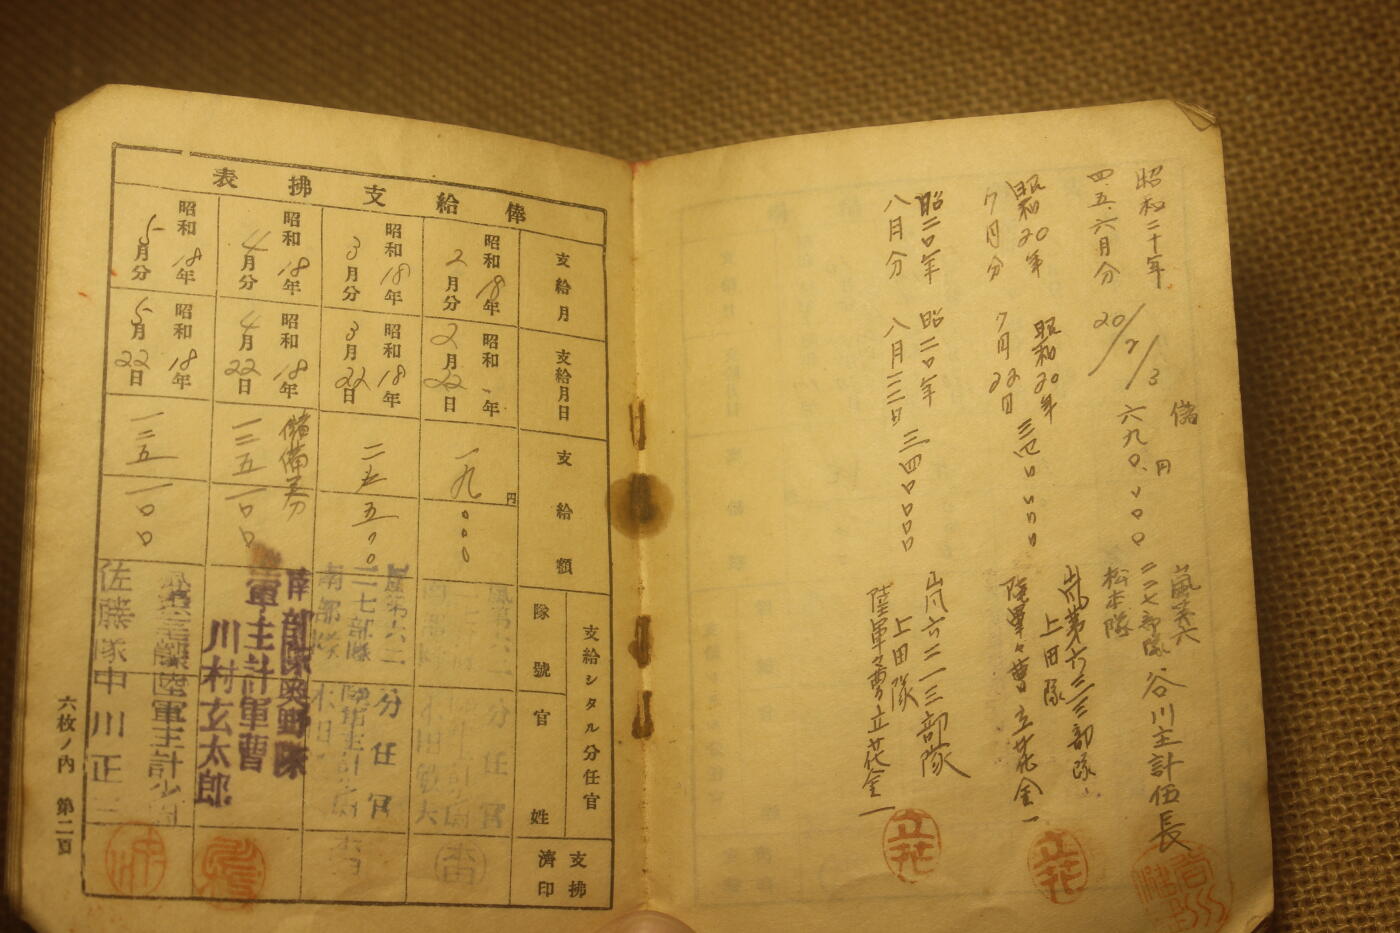 昭和二十年
四、五、六月分
20/7/3
儲
円
六九〇、〇〇〇
嵐第六
二二七部隊
松本隊
谷川主計伍長
昭和20年
7月分
昭和20年
7月22日
三四〇〇〇〇
上田隊
立花金一
立花
昭二〇年
八月分
昭二〇年
八月二二日
三四〇〇〇〇
嵐六二一三部隊
上田隊
陸軍々曹立花金一
立花
俸給支拂表
支給月
支給月日
支給額
支給シタル分任官
隊號
官姓
支拂濟印
昭和18年
2月分
昭和 年
2月22日
円
一九
〇〇〇
分任官
昭和18年
3月分
昭和18年
3月22日
南部隊
分任官
昭和18年
4月分
昭和18年
4月22日
儲備券
一二五
一〇〇
南部隊奥野隊
軍主計軍曹
川村玄太郎
昭和18年
5月分
昭和18年
5月22日
一二五
一〇〇
陸軍主計少尉
佐藤隊中川正二
六枚ノ内 第二頁